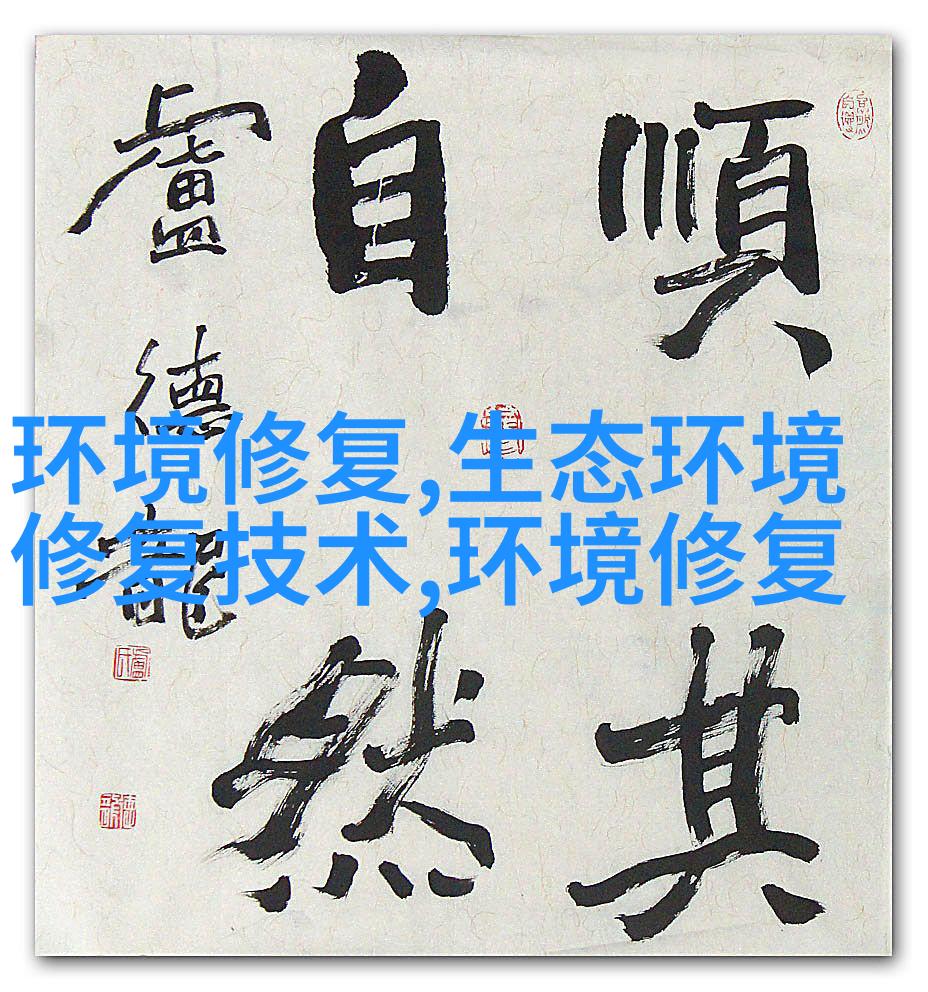 順其
自然
盧德龍
环境修复,生态环境
修复技术,环境修复